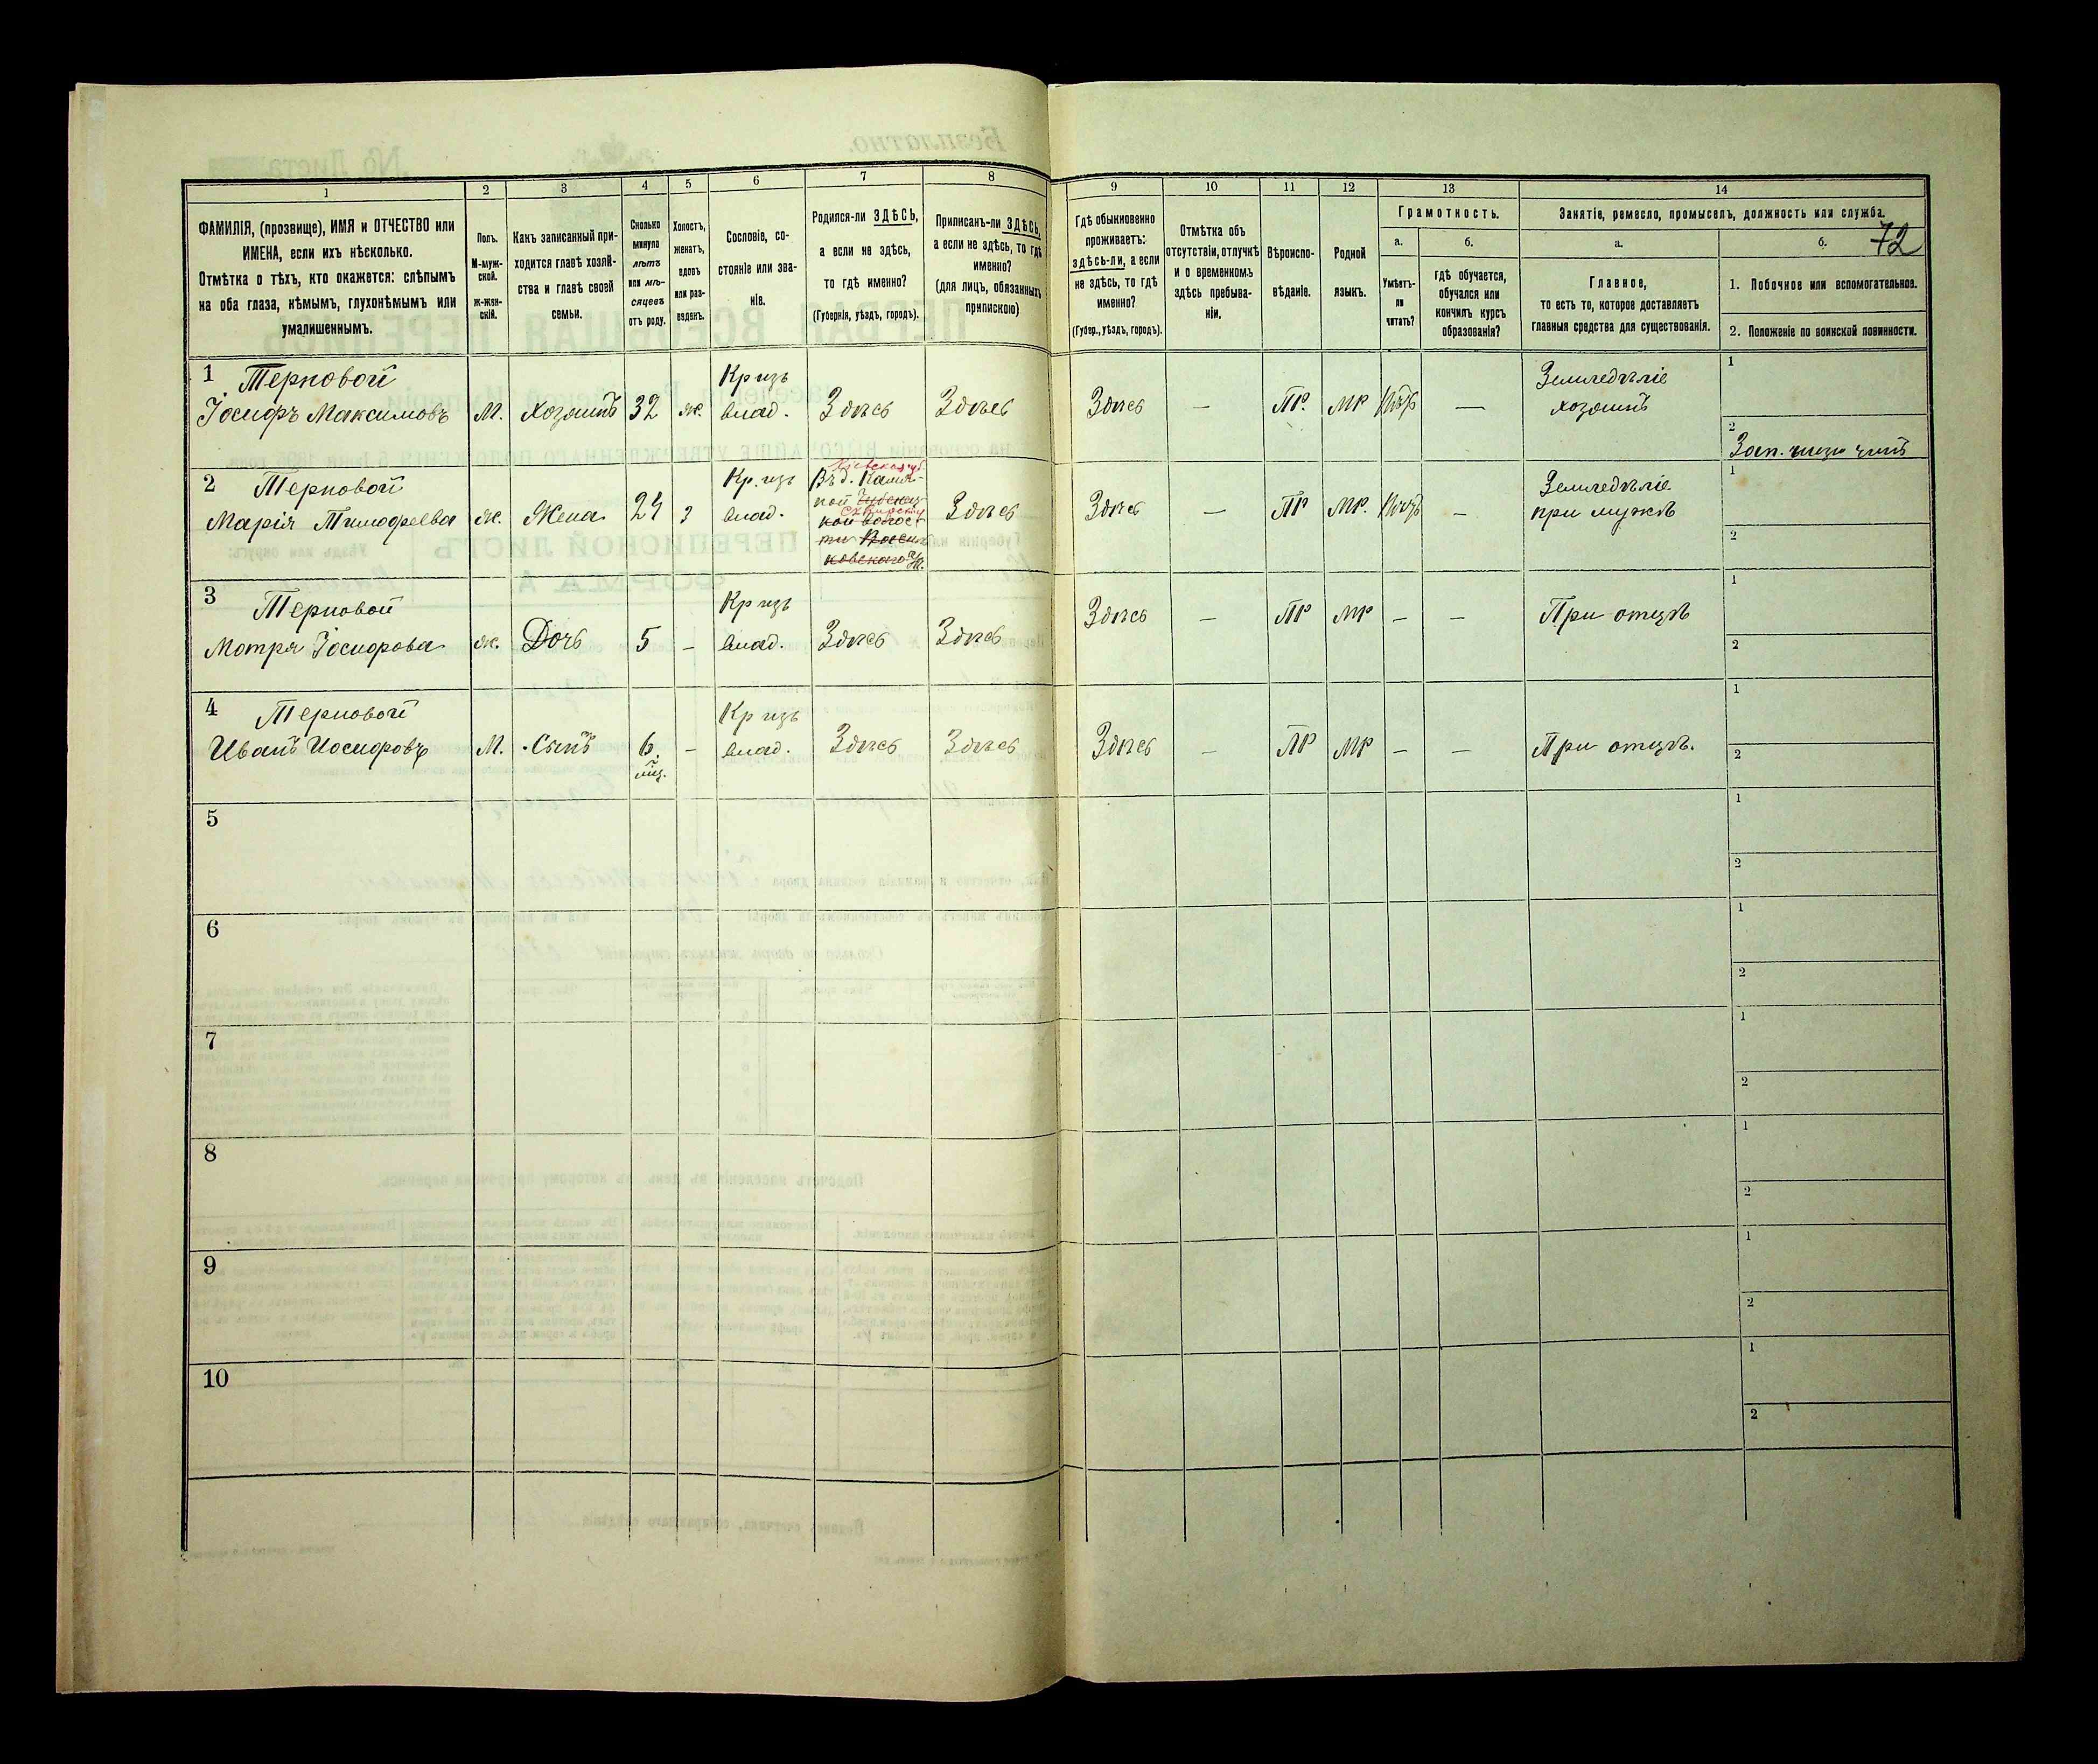 1 2 3 4 5 6 7 8 9 10 11 12 13 14
72
ФАМИЛІЯ, (прозвище), ИМЯ и ОТЧЕСТВО или
ИМЕНА, если ихъ нѣсколько.
Отмѣтка о тѣхъ, кто окажется: слѣпымъ
на оба глаза, нѣмымъ, глухонѣмымъ или
умалишеннымъ.
Полъ.
М-муж-
ской.
ж-жен-
скій.
Какъ записанный при-
ходится главѣ хозяй-
ства и главѣ своей
семьи.
Сколько
минуло
лѣтъ
или мѣ-
сяцевъ
отъ роду.
Холостъ,
женатъ,
вдовъ
или раз-
веденъ.
Сословіе, со-
стояніе или зва-
ніе.
Родился-ли ЗДѢСЬ,
а если не здѣсь,
то гдѣ именно?
(Губернія, уѣздъ, городъ).
Приписанъ-ли ЗДѢСЬ,
а если не здѣсь, то гдѣ
именно?
(для лицъ, обязанныхъ
припискою)
Гдѣ обыкновенно
проживаетъ:
здѣсь-ли, а если
не здѣсь, то гдѣ
именно?
(Губер., уѣздъ, городъ).
Отмѣтка объ
отсутствіи, отлучкѣ
и о временномъ
здѣсь пребыва-
ніи.
Вѣроиспо-
вѣданіе.
Родной
языкъ.
Грамотность.
а.
Умѣетъ-
ли
читать?
б.
гдѣ обучается,
обучался или
кончилъ курсъ
образованія?
Занятіе, ремесло, промыселъ, должность или служба.
а.
Главное,
то есть то, которое доставляетъ
главныя средства для существованія.
б.
1. Побочное или вспомогательное.
2. Положеніе по воинской повинности.
1 Терновой
Іосифъ Максимовъ
М.
Хозяинъ
32
ж.
Кр изъ
влад.
Здѣсь
Здѣсь
Здѣсь
—
ПР.
МР
—
Земледѣліе
хозяинъ
1
2
2 Терновой
Марія Тимофеева
ж.
Жена
24
з
Кр. изъ
влад.
Здѣсь
Здѣсь
—
ПР
МР.
—
Земледѣліе
при мужѣ
1
2
3 Терновой
Мотря Іосифова
ж.
Дочь
5
—
Кр изъ
влад.
Здѣсь
Здѣсь
Здѣсь
—
ПР
МР
—
—
При отцѣ
1
2
4 Терновой
Иванъ Иосифовъ
М.
Сынъ
6
—
Кр изъ
влад.
Здѣсь
Здѣсь
Здѣсь
—
ПР
МР
—
—
При отцѣ.
1
2
5
1
2
6
1
2
7
1
2
8
1
2
9
1
2
10
1
2